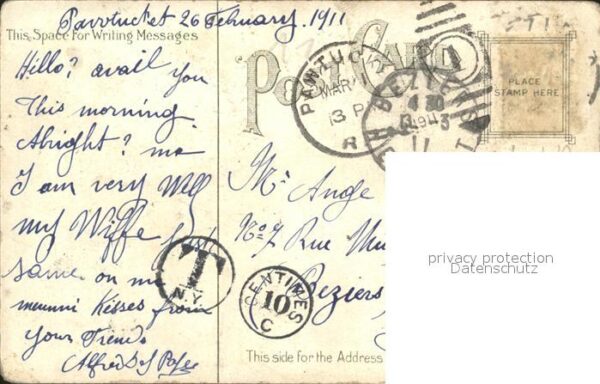 Pavvtucket 26 February, 1911
This Space for Writing Messages
POST CARD
Hillo? avail you
This morning.
Alright? me
I am very Well
my Wiffe
same on my
Kisses from
your Friend.
Alfred
PAWTUCKET
MAR 1
3 P
R
1
BEZIERS
4 30
11
PLACE
STAMP HERE
Mr Ange
No 7 Rue
Beziers
T
N.Y.
CENTIMES
10
C
This side for the Address
privacy protection
Datenschutz